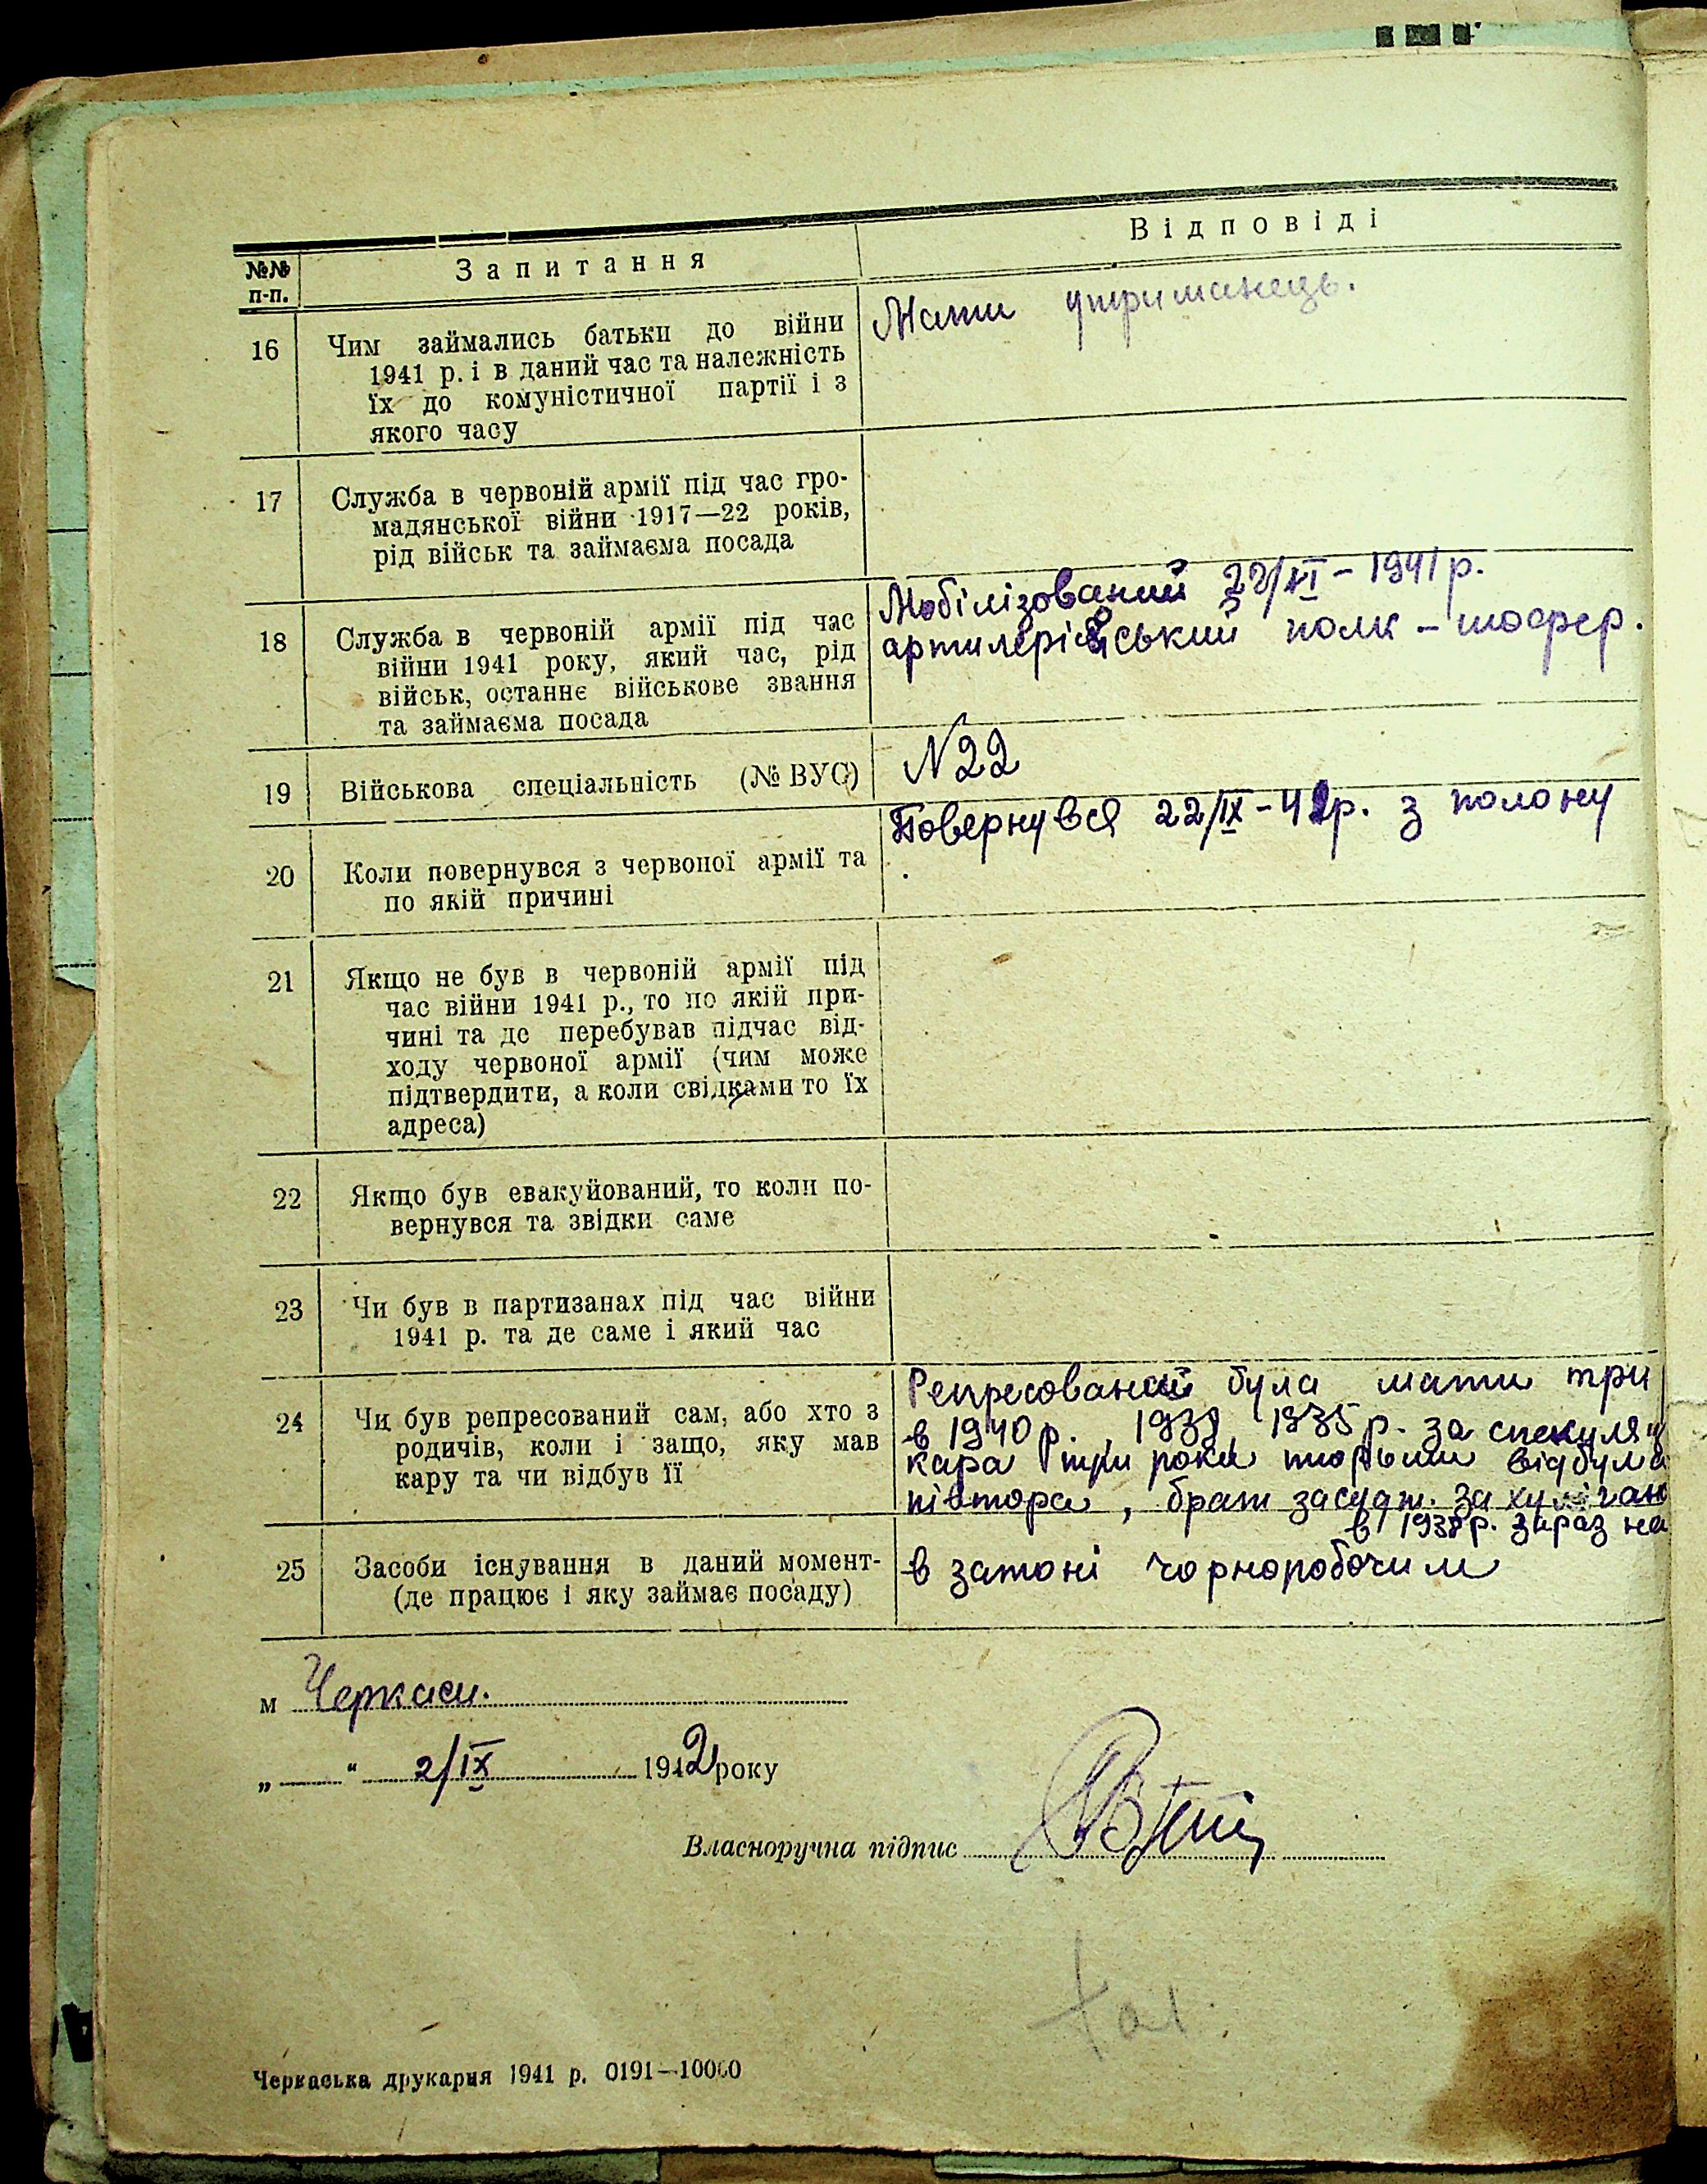 №№ п-п. Запитання Відповіді
16 Чим займались батьки до війни
1941 р. і в даний час та належність
їх до комуністичної партії і з
якого часу
Мати утриманець.
17 Служба в червоній армії під час гро-
мадянської війни 1917—22 років,
рід військ та займаєма посада
18 Служба в червоній армії під час
війни 1941 року, який час, рід
військ, останнє військове звання
та займаєма посада
Мобілізований 22/VI - 1941 р.
артилерійський полк - шофер.
19 Військова спеціальність (№ ВУС)
N22
20 Коли повернувся з червоної армії та
по якій причині
Повернувся 22/IX - 41р. з полону
21 Якщо не був в червоній армії під
час війни 1941 р., то по якій при-
чині та де перебував підчас від-
ходу червоної армії (чим може
підтвердити, а коли свідками то їх
адреса)
22 Якщо був евакуйований, то коли по-
вернувся та звідки саме
23 Чи був в партизанах під час війни
1941 р. та де саме і який час
24 Чи був репресований сам, або хто з
родичів, коли і защо, яку мав
кару та чи відбув її
Репресований була мати три
в 1940 р., 1938, 1935 р. за спекуляц
кара три роки тюрьми відбула
півтора, брат засудж. за хуліган
в 1938 р. зараз на
25 Засоби існування в даний момент-
(де працює і яку займає посаду)
в затоні чорноробочим
м Черкаси.
„ “ 2/IX 1942 року
Власноручна підпис
Черкаська друкарня 1941 р. 0191—10000